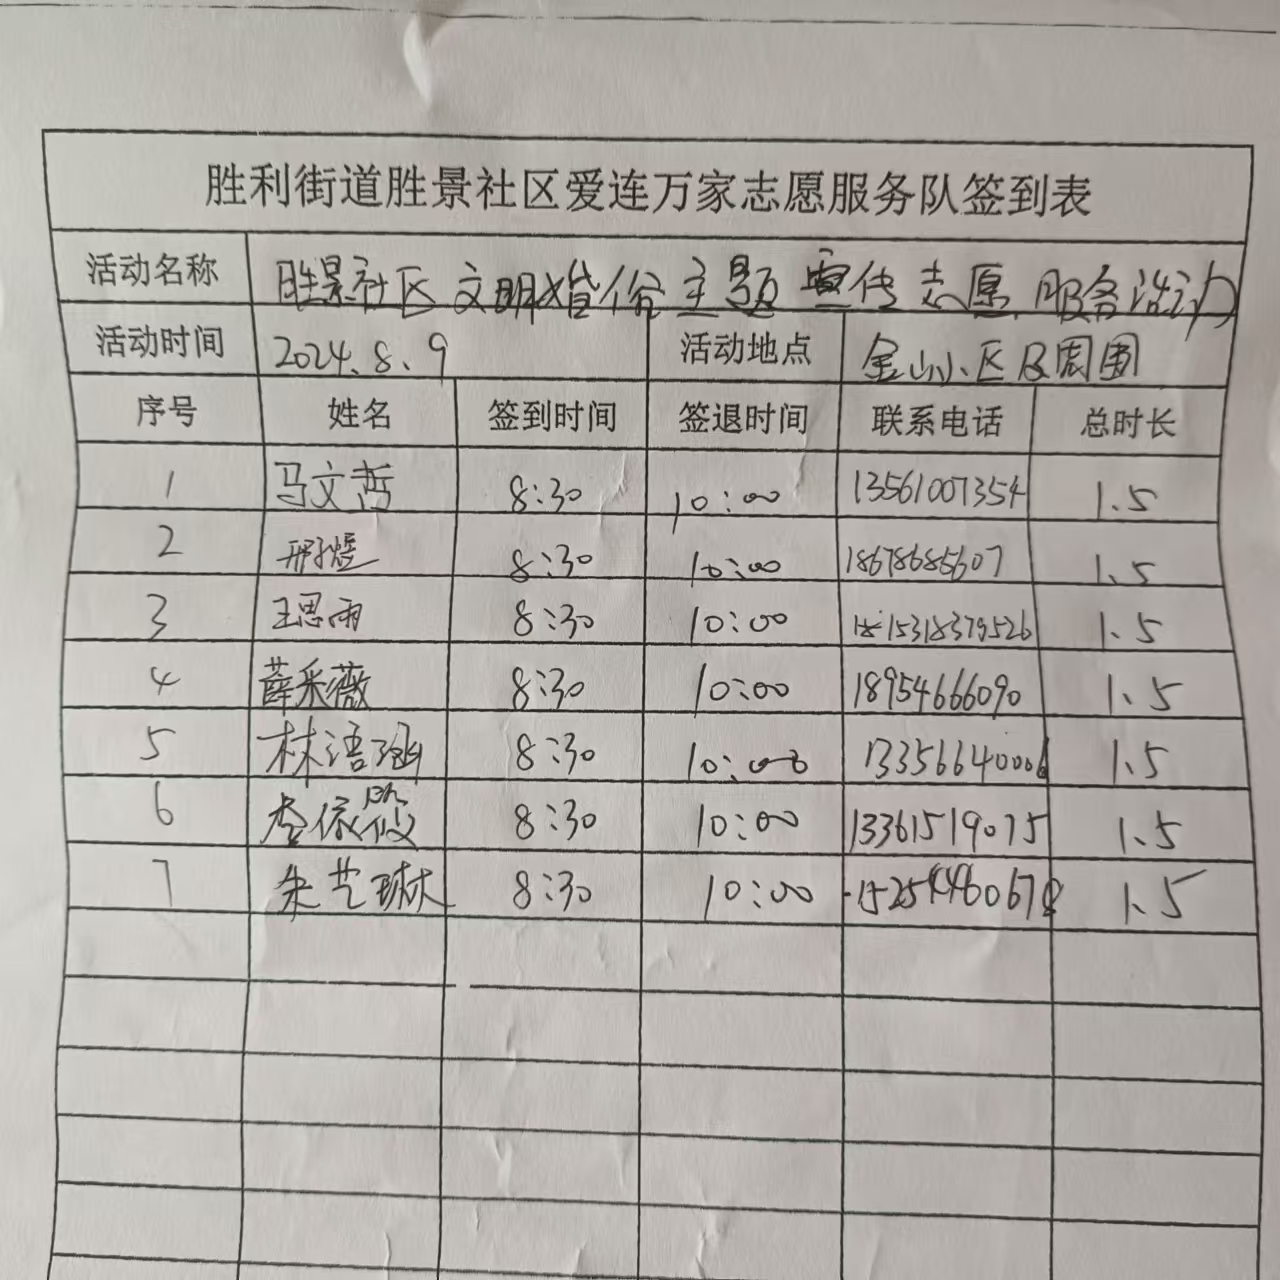 胜利街道胜景社区爱连万家志愿服务队签到表
活动名称 胜景社区文明婚俗主题宣传志愿服务活动
活动时间 2024.8.9 活动地点 金山小区及周围
序号 姓名 签到时间 签退时间 联系电话 总时长
1 马文哲 8:30 10:00 13561007354 1.5
2 邢煜 8:30 10:00 18678685607 1.5
3 王思雨 8:30 10:00 15318379526 1.5
4 薛采薇 8:30 10:00 18954666090 1.5
5 林语涵 8:30 10:00 13356640006 1.5
6 8:30 10:00 13361519075 1.5
7 朱艺琳 8:30 10:00 15254460678 1.5